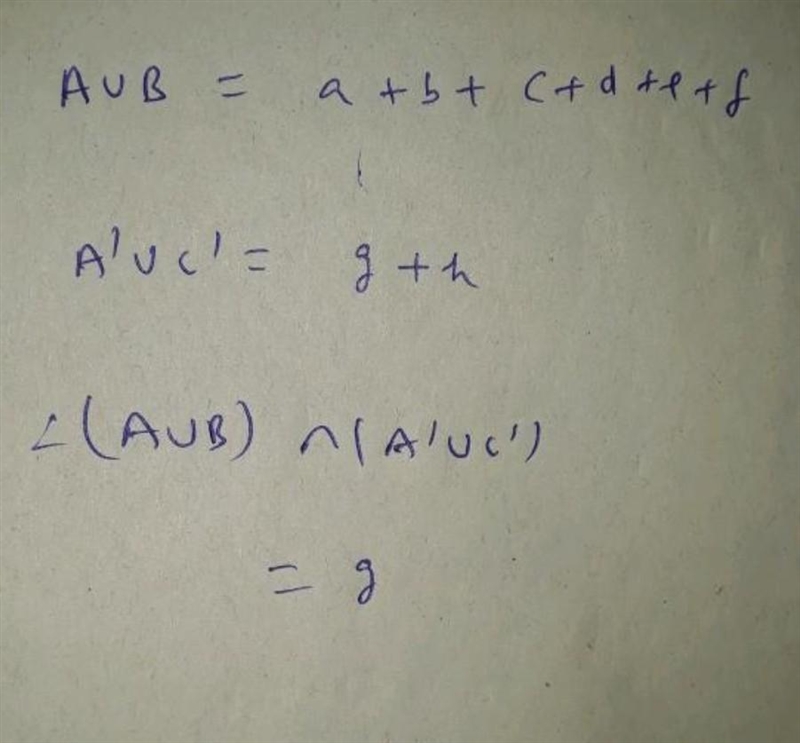 A∪B = a + b + c + d + e + f
A'∪C' = g + h
∠(A∪B) ∩ (A'∪C')
= g